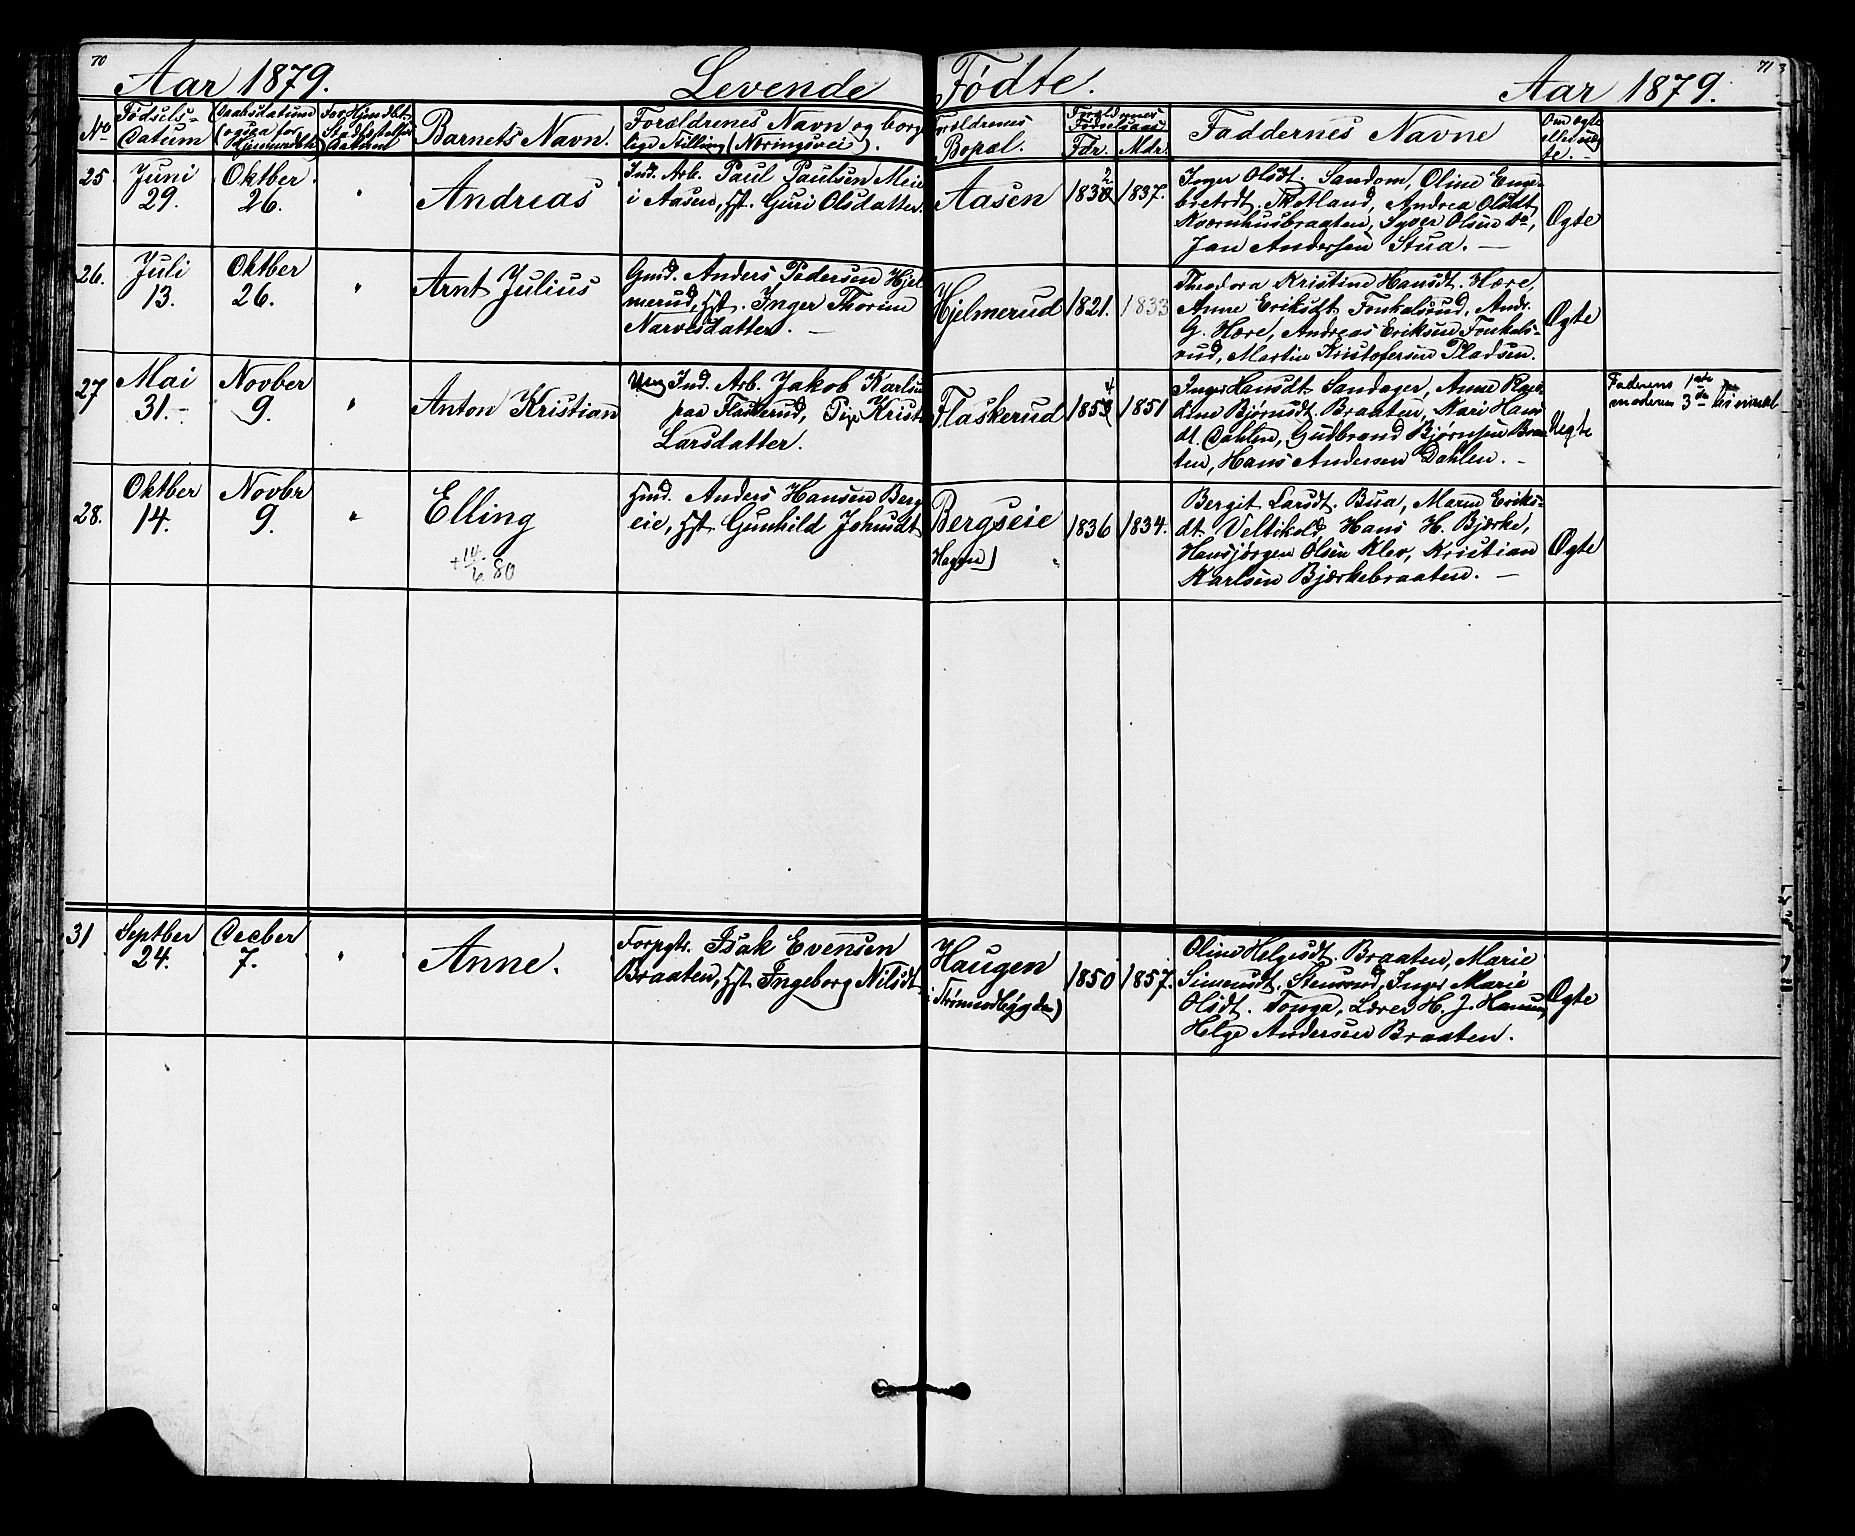 70
Aar 1879. Levende Fødte. Aar 1879. 71
No
Fødsels-
Datum
Daabsdatum
Barnets Navn.
Forældrenes Navn og borger
lige Stilling (Næringsvei).
Forældrenes
Bopæl.
Forældrenes
Fødselsaar
Fdr. Mdr.
Faddernes Navne
Om ægte
eller uæg
te.
25
Juni
29.
Oktber
26.
"
Andreas
Ind. Arb. Paul Paulsen Meie
i Aasen, Hst. Guri Olsdatter.
Aasen
1832 1837.
Inger Olsdt. Sandom, Oline Enge-
bretsdt. Rotland, Andrea Olsdt.
Kværnhusbraaten, Syver Olsen do,
Jan Andersen Stua. —
Ægte
26.
Juli
13.
Oktber
26.
"
Arnt Julius
Gmd. Anders Pedersen Hjel
merud, Hst. Inger Thorine
Narvesdatter. —
Hjelmerud
1821. 1833
Theodora Kristine Hansdt. Hære,
Anne Eriksdt. Fonkalsrud, Andr.
G. Hære, Andreas Eriksen Fonkals-
rud, Martin Kristofersen Pladsen.
Ægte
27
Mai
31.-
Novber
9.
"
Anton Kristian
Ung Ind. Arb. Jakob Karlsen
paa Flaskerud, Pige Kristi
Larsdatter.
Flaskerud
1854 1851
Inger Hansdt. Sandager, Anne
dine Bjørnsdt. Braaten, Kari Hans
dt. Dahlen, Gudbrand Bjørnsen Braa
ten, Hans Andersen Dahlen. -
Uegte
Faderens 1ste
moderens 3die
28.
Oktber
14.
Novbr
9.
"
Elling
+ 14/6 80
Hmd. Anders Hansen Berg
eie, Hst. Gunhild Johnsdt.
Bergseie
Hagen)
1836 1834.
Bergit Larsdt. Bua, Maren Eriks-
dt. Veltikold, Hans H. Bjørke,
Hansjørgen Olsen Klev, Kristian
Karlsen Bjørkebraaten. —
Ægte
31
Septber
24.
Decber
7.
"
Anne.
Forpgtr. Isak Evensen
Braaten, Hst. Ingeborg Nilsdt.
Haugen
i Strømsodbygden)
1850 1857.
Oline Helgesdt. Braaten, Marie
Simensdt. Stensrud, Inger Marie
Olsdt. Tonga, Lærer H. J. Hansen,
Helge Andersen Braaten.
Ægte